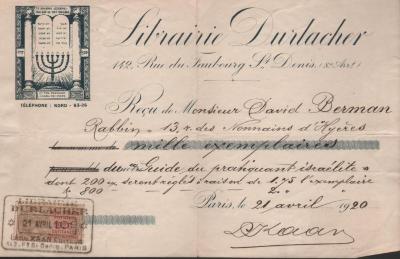 Librairie Durlacher
142, Rue du Faubourg St Denis, (Xe Arrt)
TÉLÉPHONE : NORD - 63-26
Reçu de Monsieur David Berman
Rabbin 13, r. des Nonnains d'Hyères
mille exemplaires
du "Guide du pratiquant israélite"
dont 200 ex. seront réglés à raison de 1.75 l'exemplaire
" 800 " 2. "
Paris, le 21 avril 1920
LIBRAIRIE
DURLACHER
21 AVRIL
142, FBG St DENIS, PARIS